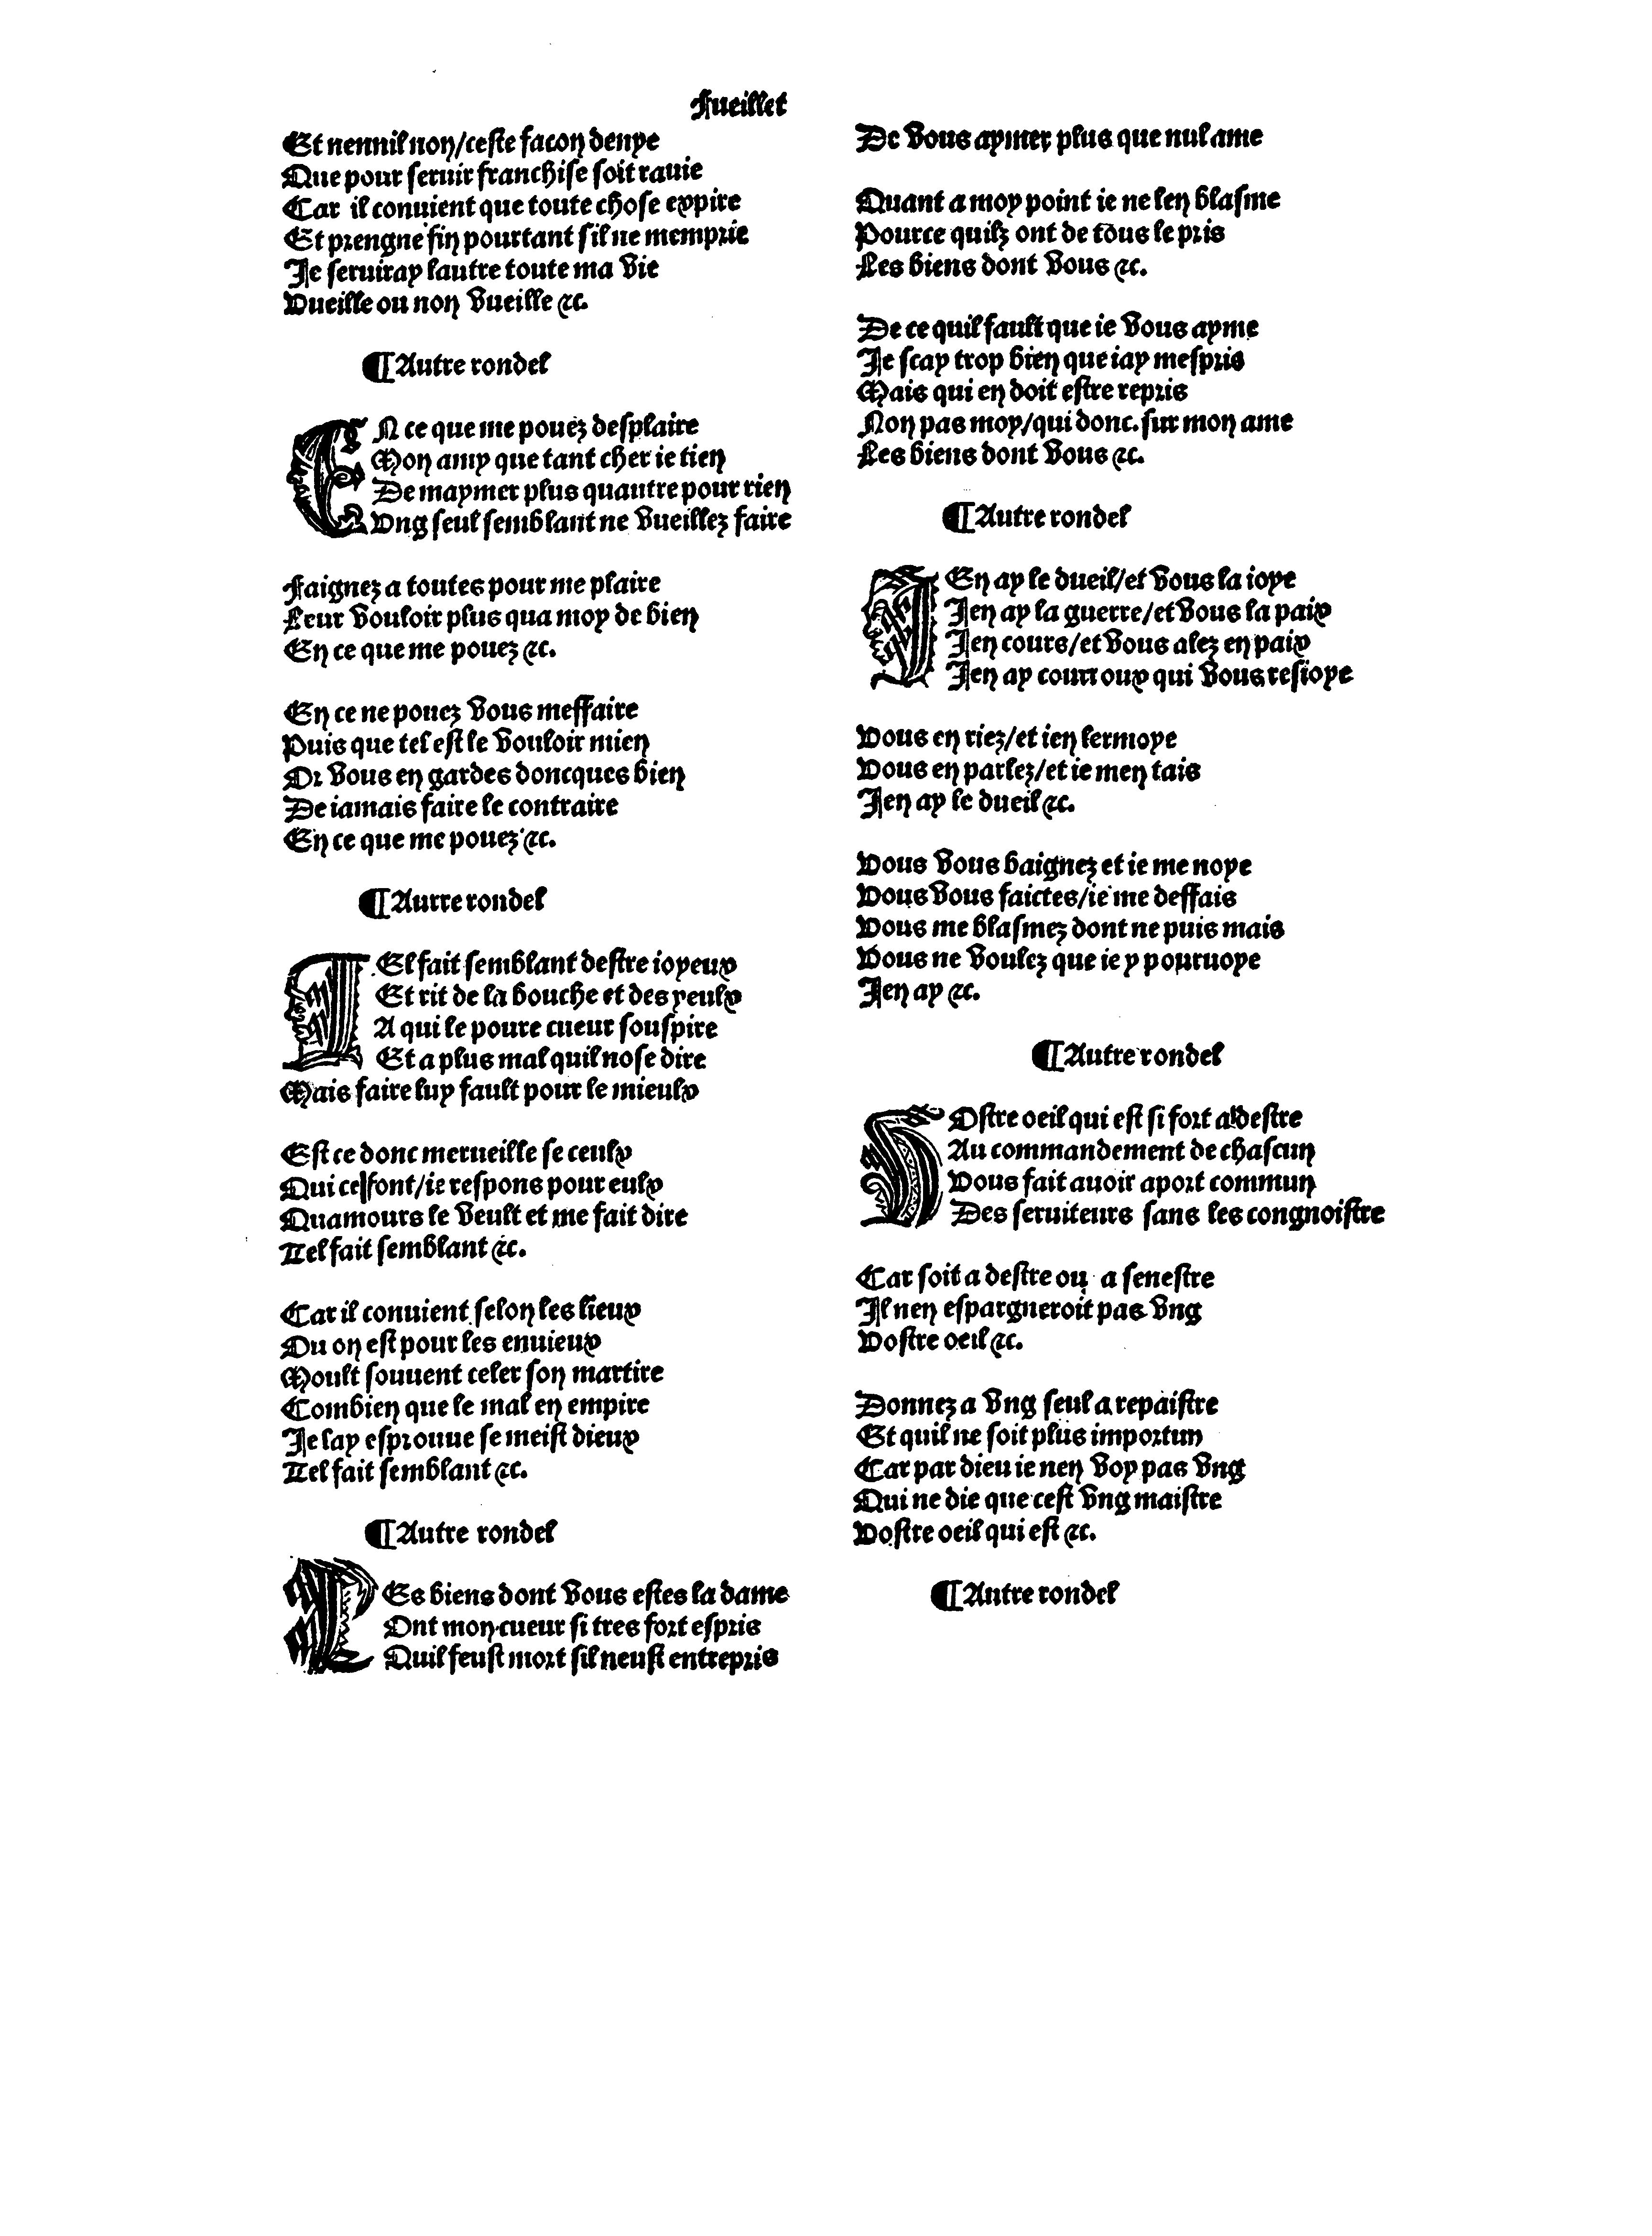 Fueillet
Et nennil non/ceste facon denye
Que pour seruir franchise soit rauie
Car il conuient que toute chose expire
Et prengne fin pourtant sil ne memprie
Je seruiray lautre toute ma vie
Vueille ou non vueille &c.
¶Autre rondel
EN ce que me pouez desplaire
Mon amy que tant cher ie tien
De maymer plus quautre pour rien
Vng seul semblant ne vueillez faire
Faignez a toutes pour me plaire
Leur vouloir plus qua moy de bien
En ce que me pouez &c.
En ce ne pouez vous meffaire
Puis que tel est le vouloir mien
Or vous en gardes doncques bien
De iamais faire le contraire
En ce que me pouez &c.
¶Autre rondel
TEl fait semblant destre ioyeux
Et rit de la bouche et des yeulx
A qui le poure cueur souspire
Et a plus mal quil nose dire
Mais faire luy fault pour le mieulx
Est ce donc merueille se ceulx
Qui ce font/ie respons pour eulx
Quamours le veult et me fait dire
Tel fait semblant &c.
Car il conuient selon les lieux
Ou on est pour les enuieux
Moult souuent celer son martire
Combien que le mal en empire
Je lay esprouue se meist dieux
Tel fait semblant &c.
¶Autre rondel
LEs biens dont vous estes la dame
Ont mon cueur si tres fort espris
Quil feust mort sil neust entrepris
De vous aymer plus que nul ame
Quant a moy point ie ne len blasme
Pource quilz ont de tous le pris
Les biens dont vous &c.
De ce quil fault que ie vous ayme
Je scay trop bien que iay mespris
Mais qui en doit estre repris
Non pas moy/qui donc. sur mon ame
Les biens dont vous &c.
¶Autre rondel
JEn ay le dueil/et vous la ioye
Jen ay la guerre/et vous la paix
Jen cours/et vous alez en paix
Jen ay courroux qui vous resioye
Vous en riez/et ien lermoye
Vous en parlez/et ie men tais
Jen ay le dueil &c.
Vous vous baignez et ie me noye
Vous vous faictes/ie me deffais
Vous me blasmez dont ne puis mais
Vous ne voulez que ie y pouruoye
Jen ay &c.
¶Autre rondel
VOstre oeil qui est si fort adestre
Au commandement de chascun
Vous fait auoir aport commun
Des seruiteurs sans les congnoistre
Car soit a destre ou a senestre
Il nen espargneroit pas vng
Vostre oeil &c.
Donnez a vng seul a repaistre
Et quil ne soit plus importun
Car par dieu ie nen voy pas vng
Qui ne die que cest vng maistre
Vostre oeil qui est &c.
¶Autre rondel